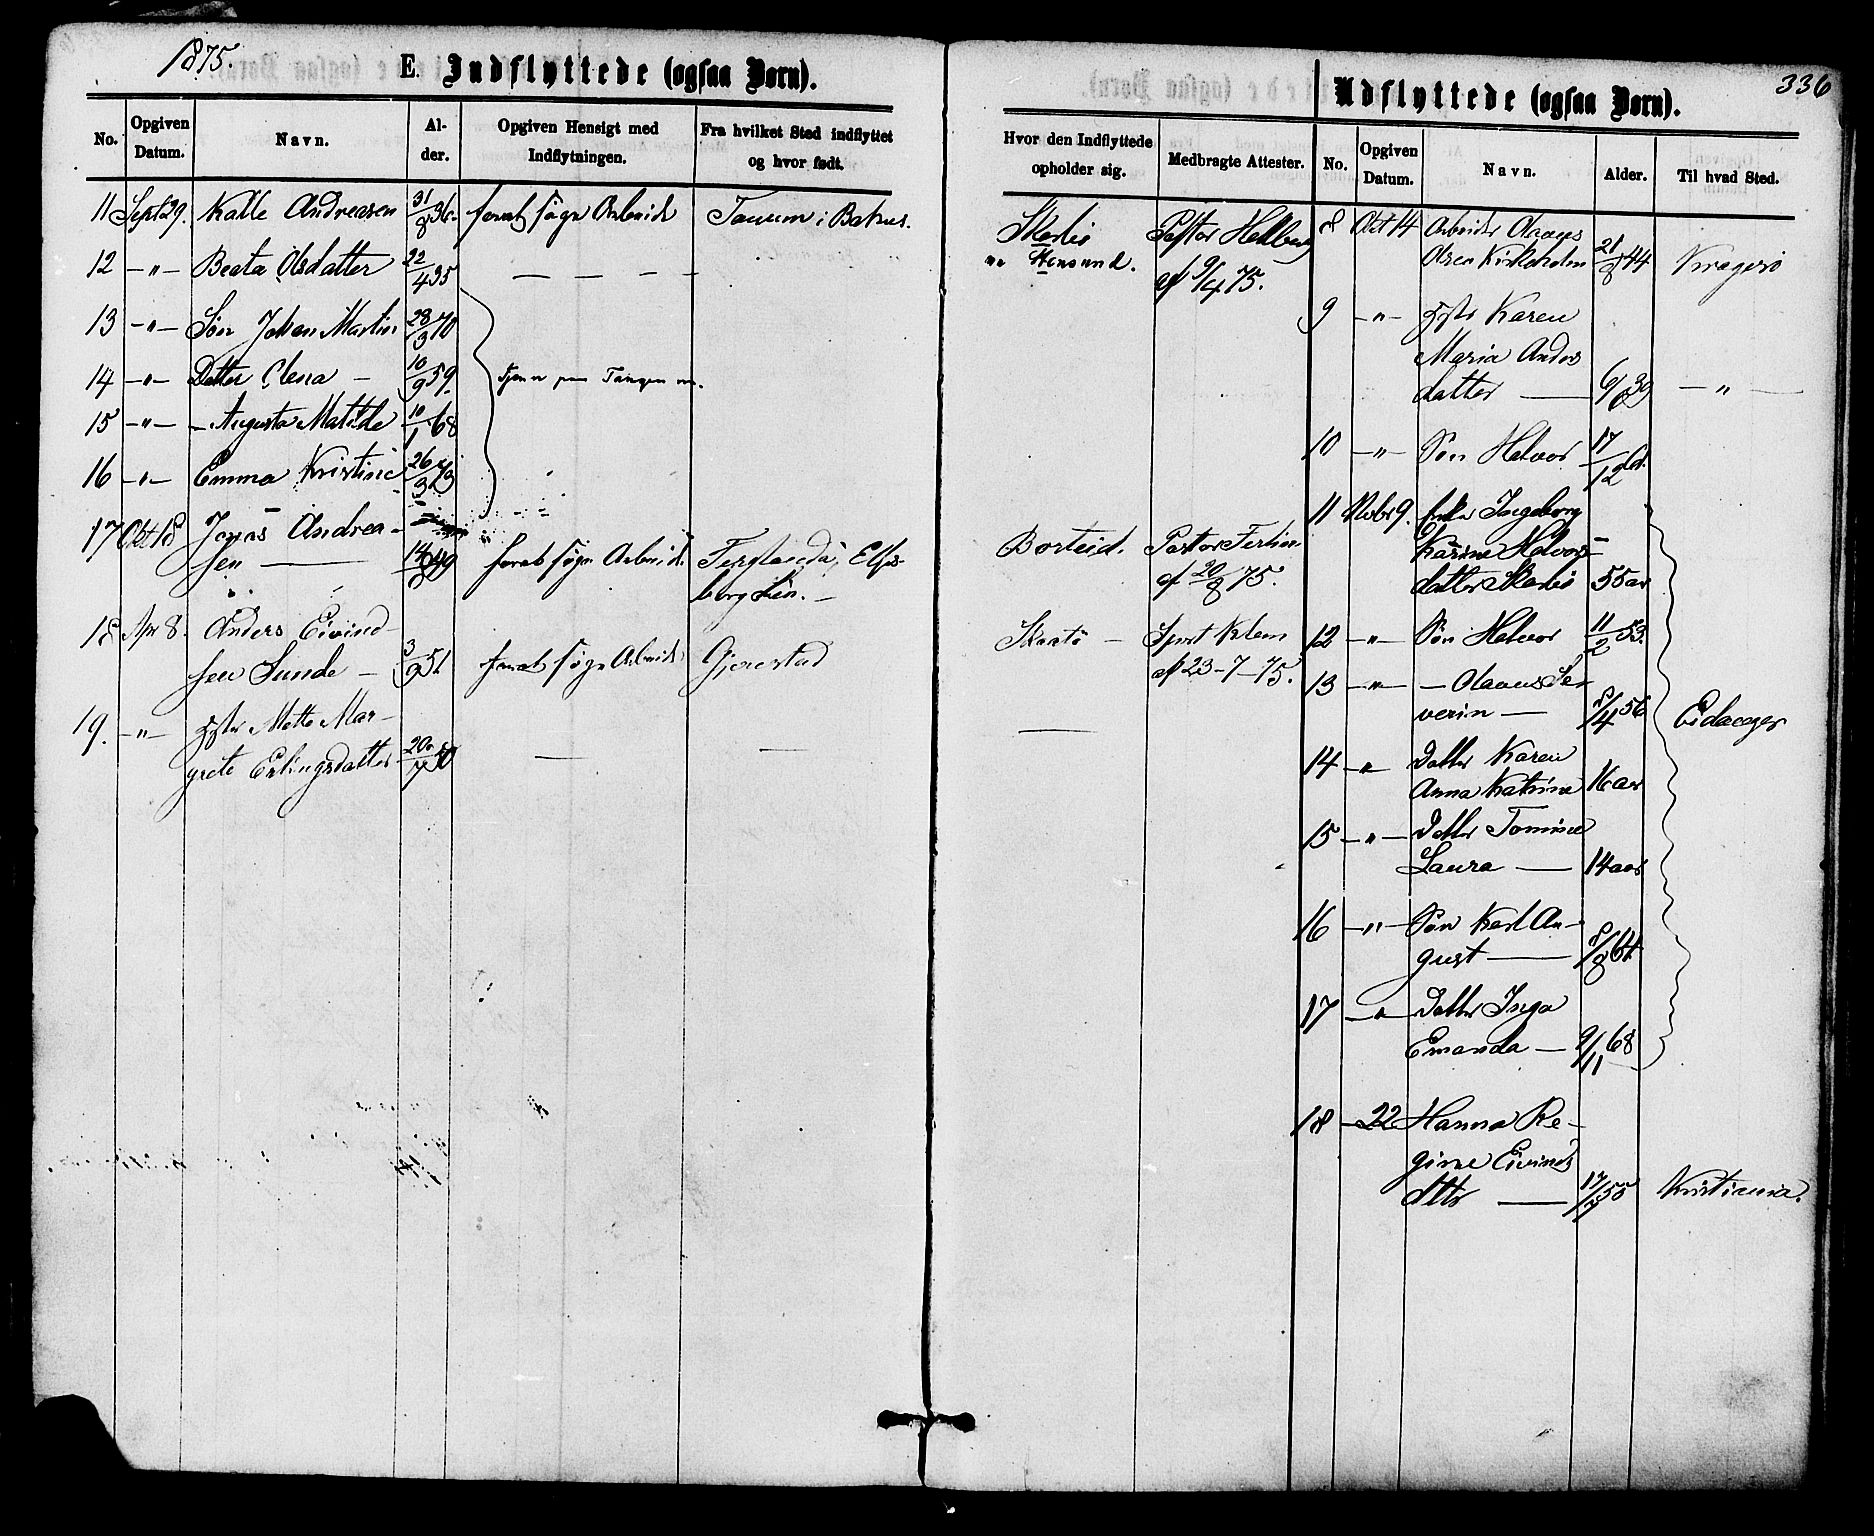 1875.
E. Indflyttede (ogsaa Børn).
No.
Opgiven Datum.
Navn.
Al-der.
Opgiven Hensigt med Indflytningen.
Fra hvilket Sted indflyttet og hvor født.
11 Sept 29. Kalle Andreasen 31/8 36. forat søge Arbeide Tanum i Bahus.
12 -"- Beata Olsdatter 22/4 35 — — — —
13 -"- Søn Johan Martin 28/3 70
14 -"- Datter Elena — 10/9 59.
15 -"- — Augusta Matilde 10/1 68
16 -"- Emma Kristine 26/3 73
17 Okt 18 Jonas Andrea-
sen — 14/8 49 forat søge Arbeide Elfs-
borg Län. —
18 Apr 8. Anders Eivind-
sen Sunde — 3/9 51 forat søge Arbeide Gjerestad
19. -"- Mette Mar-
grete Erlingsdatter 20/7 50 — —
336
Udflyttede (ogsaa Børn).
Hvor den Indflyttede opholder sig.
Medbragte Attester.
No.
Opgiven Datum.
Navn.
Alder.
Til hvad Sted.
Pastor Hellberg
af 9/4 75.
Pastor
af 20/8 75.
Skaatø — Sprst Klem
af 23-7-75.
8 Okt 14 Arbeider Olaves
Olsen Kirkeholm 21/8 44 Kragerø
9 -"- Karen
Maria Anders
datter — 6/8 39 — " —
10 -"- Søn Helvor
11 Novbr 9. Enke Ingeborg
Karine Helvors-
datter 55 aar
12 -"- Søn Helvor 11/2 53.
13 -"- — Olaves Se-
verin — 8/4 56 Eidanger
14 -"- Datter Karen
Anna Katrine 16 aar
15 -"- Datter Tomine
Laura — 14 aar
16 -"- Søn Karl Au-
gust — 8/8 64
17 -"- Datter Inga
Emanda — 9/11 68
18 — 22 Hanna Re-
gine Eivinds
dttr — 17/7 55 Kristiania.